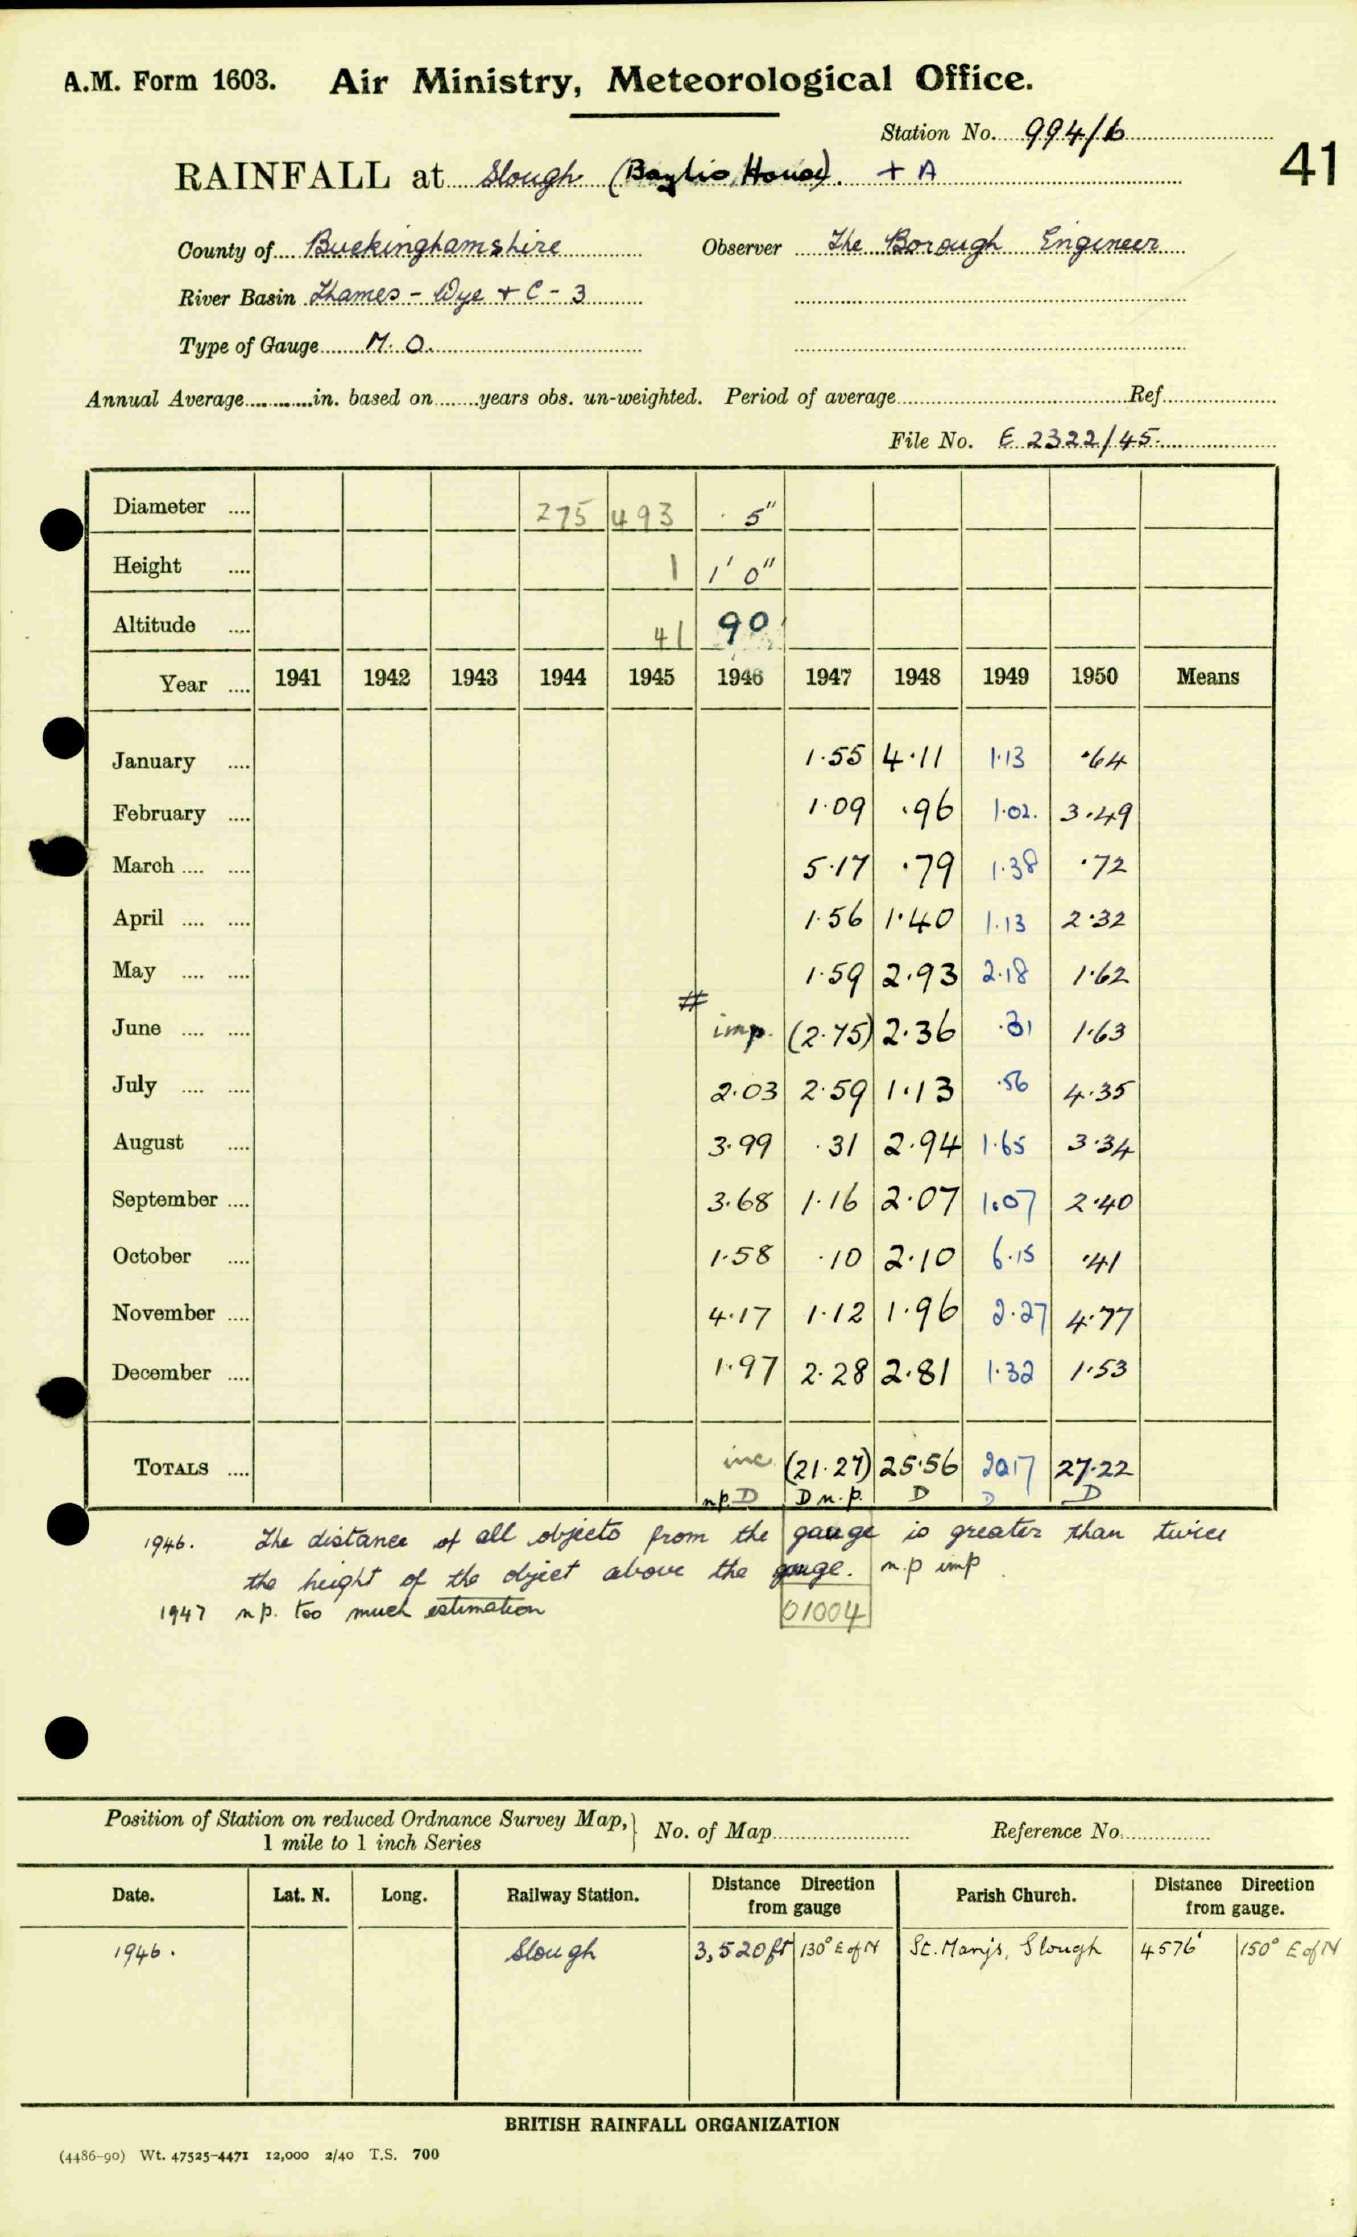 A.M. Form 1603. Air Ministry, Meteorological Office.
Station No. 994/6
41
RAINFALL at Slough (Baylis House). + A
County of Buckinghamshire Observer The Borough Engineer
River Basin Thames - Wye + C - 3
Type of Gauge M. O.
Annual Average in. based on years obs. un-weighted. Period of average Ref
File No. E 2322/45.
Diameter 275 493 5"
Height 1 1' 0"
Altitude 41 90
Year 1941 1942 1943 1944 1945 1946 1947 1948 1949 1950 Means
January 1.55 4.11 1.13 .64
February 1.09 .96 1.02 3.49
March 5.17 .79 1.38 .72
April 1.56 1.40 1.13 2.32
May 1.59 2.93 2.18 1.62
#
June imp. (2.75) 2.36 .31 1.63
July 2.03 2.59 1.13 .56 4.35
August 3.99 .31 2.94 1.65 3.34
September 3.68 1.16 2.07 1.07 2.40
October 1.58 .10 2.10 6.15 .41
November 4.17 1.12 1.96 2.27 4.77
December 1.97 2.28 2.81 1.32 1.53
TOTALS inc. (21.27) 25.56 20.17 27.22
n.p. D D n.p. D D D
1946. The distance of all objects from the gauge is greater than twice
the height of the object above the gauge. n.p imp
1947 n p. too much estimation
01004
Position of Station on reduced Ordnance Survey Map, 1 mile to 1 inch Series No. of Map Reference No.
Date. Lat. N. Long. Railway Station. Distance Direction from gauge Parish Church. Distance Direction from gauge.
1946. Slough 3,520 ft 130° E of N St. Mary's, Slough 4576' 150° E of N
BRITISH RAINFALL ORGANIZATION
(4486-90) Wt. 47525-4471 12,000 2/40 T.S. 700